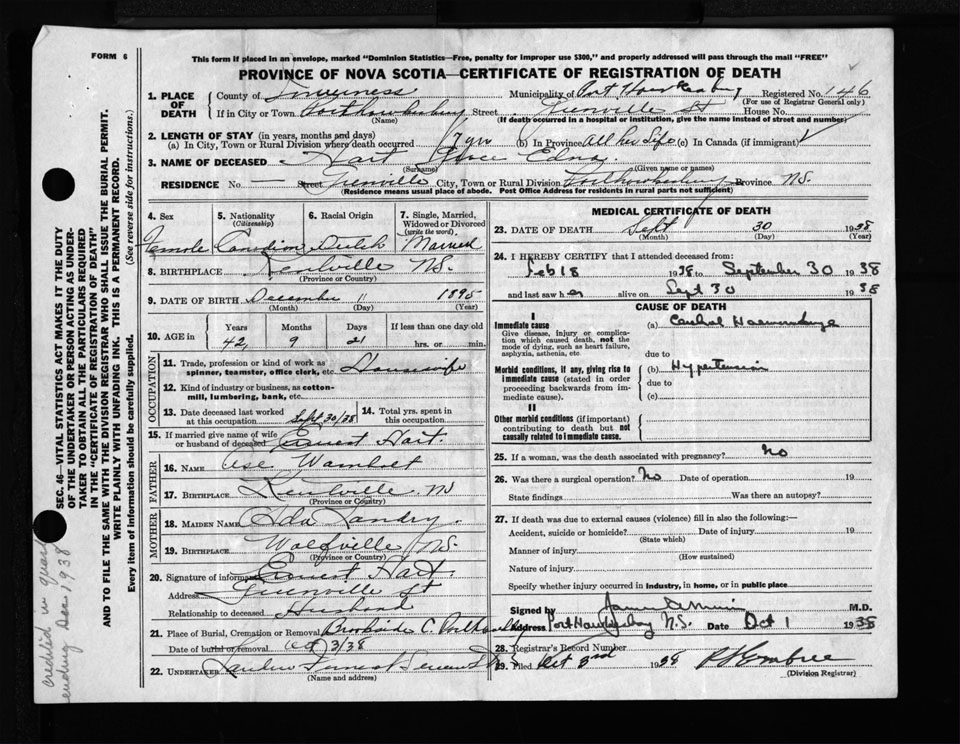 FORM 6
This form if placed in an envelope, marked "Dominion Statistics—Free, penalty for improper use $300," and properly addressed will pass through the mail "FREE"
PROVINCE OF NOVA SCOTIA—CERTIFICATE OF REGISTRATION OF DEATH
1. PLACE OF DEATH
County of Inverness Municipality of Port Hawkesbury Registered No. 146
(For use of Registrar General only)
If in City or Town Porthawkesbury Street Grenville St House No.
(Name) (If death occurred in a hospital or institution, give the name instead of street and number)
2. LENGTH OF STAY (in years, months and days)
(a) In City, Town or Rural Division where death occurred 7 yrs (b) In Province All her Life (c) In Canada (if immigrant)
3. NAME OF DECEASED Hart Edna
(Surname) (Given name or names)
RESIDENCE No — Street Grenville City, Town or Rural Division Porthawkesbury Province N.S.
(Residence means usual place of abode. Post Office Address for residents in rural parts not sufficient)
4. Sex
Female
5. Nationality
(Citizenship)
Canadian
6. Racial Origin
Dutch
7. Single, Married, Widowed or Divorced
(write the word)
Married
8. BIRTHPLACE N.S.
(Province or Country)
9. DATE OF BIRTH December 11 1895
(Month) (Day) (Year)
10. AGE in
Years Months Days If less than one day old
42 9 21 hrs. or min.
OCCUPATION
11. Trade, profession or kind of work as spinner, teamster, office clerk, etc. Housewife
12. Kind of industry or business, as cotton-mill, lumbering, bank, etc.
13. Date deceased last worked at this occupation Sept 30/38
14. Total yrs. spent in this occupation
15. If married give name of wife or husband of deceased Ernest Hart.
FATHER
16. NAME Ase Wambolt
17. BIRTHPLACE NS
(Province or Country)
MOTHER
18. MAIDEN NAME Ada Landry.
19. BIRTHPLACE Wolfville N.S.
(Province or Country)
20. Signature of informant Ernest Hart.
Address Grenville St
Relationship to deceased Husband
21. Place of Burial, Cremation or Removal Brookside C.
Date of burial or removal Oct 3/38
22. UNDERTAKER
(Name and address)
MEDICAL CERTIFICATE OF DEATH
23. DATE OF DEATH Sept 30 1938
(Month) (Day) (Year)
24. I HEREBY CERTIFY that I attended deceased from:
Feb 18 1938 to September 30 1938
and last saw her alive on Sept 30 1938
CAUSE OF DEATH
I
Immediate cause
Give disease, injury or complication which caused death, not the mode of dying, such as heart failure, asphyxia, asthenia, etc
(a) Cerebral Haemorrhage
due to
Morbid conditions, if any, giving rise to immediate cause (stated in order proceeding backwards from immediate cause).
(b) Hypertension
due to
(c)
II
Other morbid conditions (if important) contributing to death but not causally related to immediate cause.
25. If a woman, was the death associated with pregnancy? No
26. Was there a surgical operation? No Date of operation 19
State findings Was there an autopsy?
27. If death was due to external causes (violence) fill in also the following:—
Accident, suicide or homicide? Date of injury 19
(State which)
Manner of injury
(How sustained)
Nature of injury
Specify whether injury occurred in industry, in home, or in public place
Signed by M.D.
Address Port Hawkesbury N.S. Date Oct 1 1938
28. Registrar's Record Number
29. Filed Oct 3rd 1938
(Division Registrar)
SEC. 46—VITAL STATISTICS ACT MAKES IT THE DUTY OF THE UNDERTAKER OR PERSON ACTING AS UNDERTAKER TO OBTAIN ALL THE PARTICULARS REQUIRED IN THE "CERTIFICATE OF REGISTRATION OF DEATH" AND TO FILE THE SAME WITH THE DIVISION REGISTRAR WHO SHALL ISSUE THE BURIAL PERMIT.
WRITE PLAINLY WITH UNFADING INK. THIS IS A PERMANENT RECORD.
Every item of information should be carefully supplied. (See reverse side for instructions.)
credited in quart
ending Dec. 1938